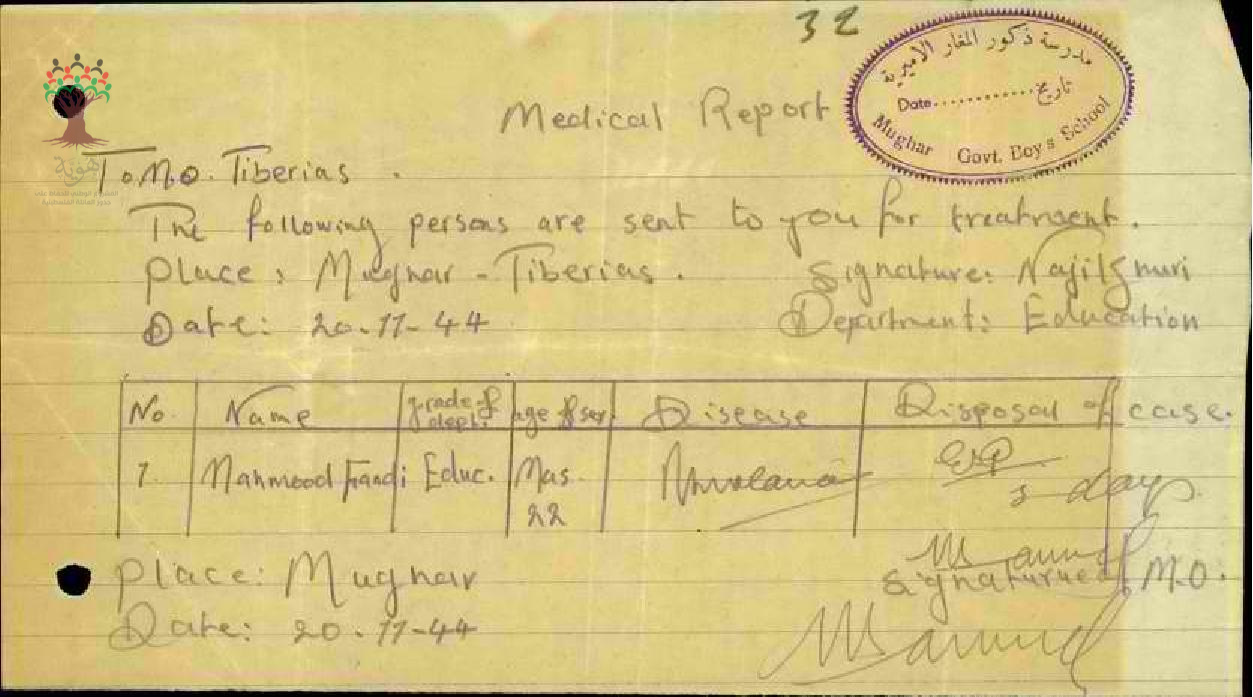 32
مدرسة ذكور المغار الاميرية
Date............ تاريخ
Mughar Govt. Boys School
Medical Report
To M.O. Tiberias.
The following persons are sent to you for treatment.
Place: Mughar - Tiberias. Signature:
Date: 20-11-44 Department: Education
No. Name grade of dept. age & sex. Disease Disposal of case.
1. Mahmood Educ. Mas. 22 days
Place: Mughar Signature of M.O.
Date: 20-11-44
هوية